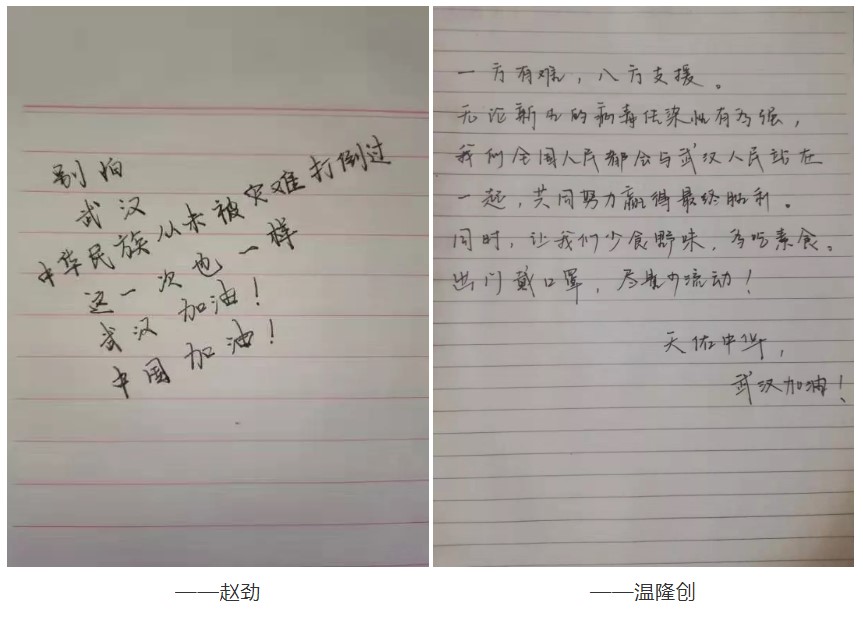 别怕
武汉
中华民族从未被灾难打倒过
这一次也一样
武汉 加油！
中国加油！
——赵劲
一方有难，八方支援。
无论新出的病毒传染性有多强，
我们全国人民都会与武汉人民站在
一起，共同努力赢得最终胜利。
同时，让我们少食野味，多吃素食。
出门戴口罩，尽量少流动！
天佑中华，
武汉加油！
——温隆创